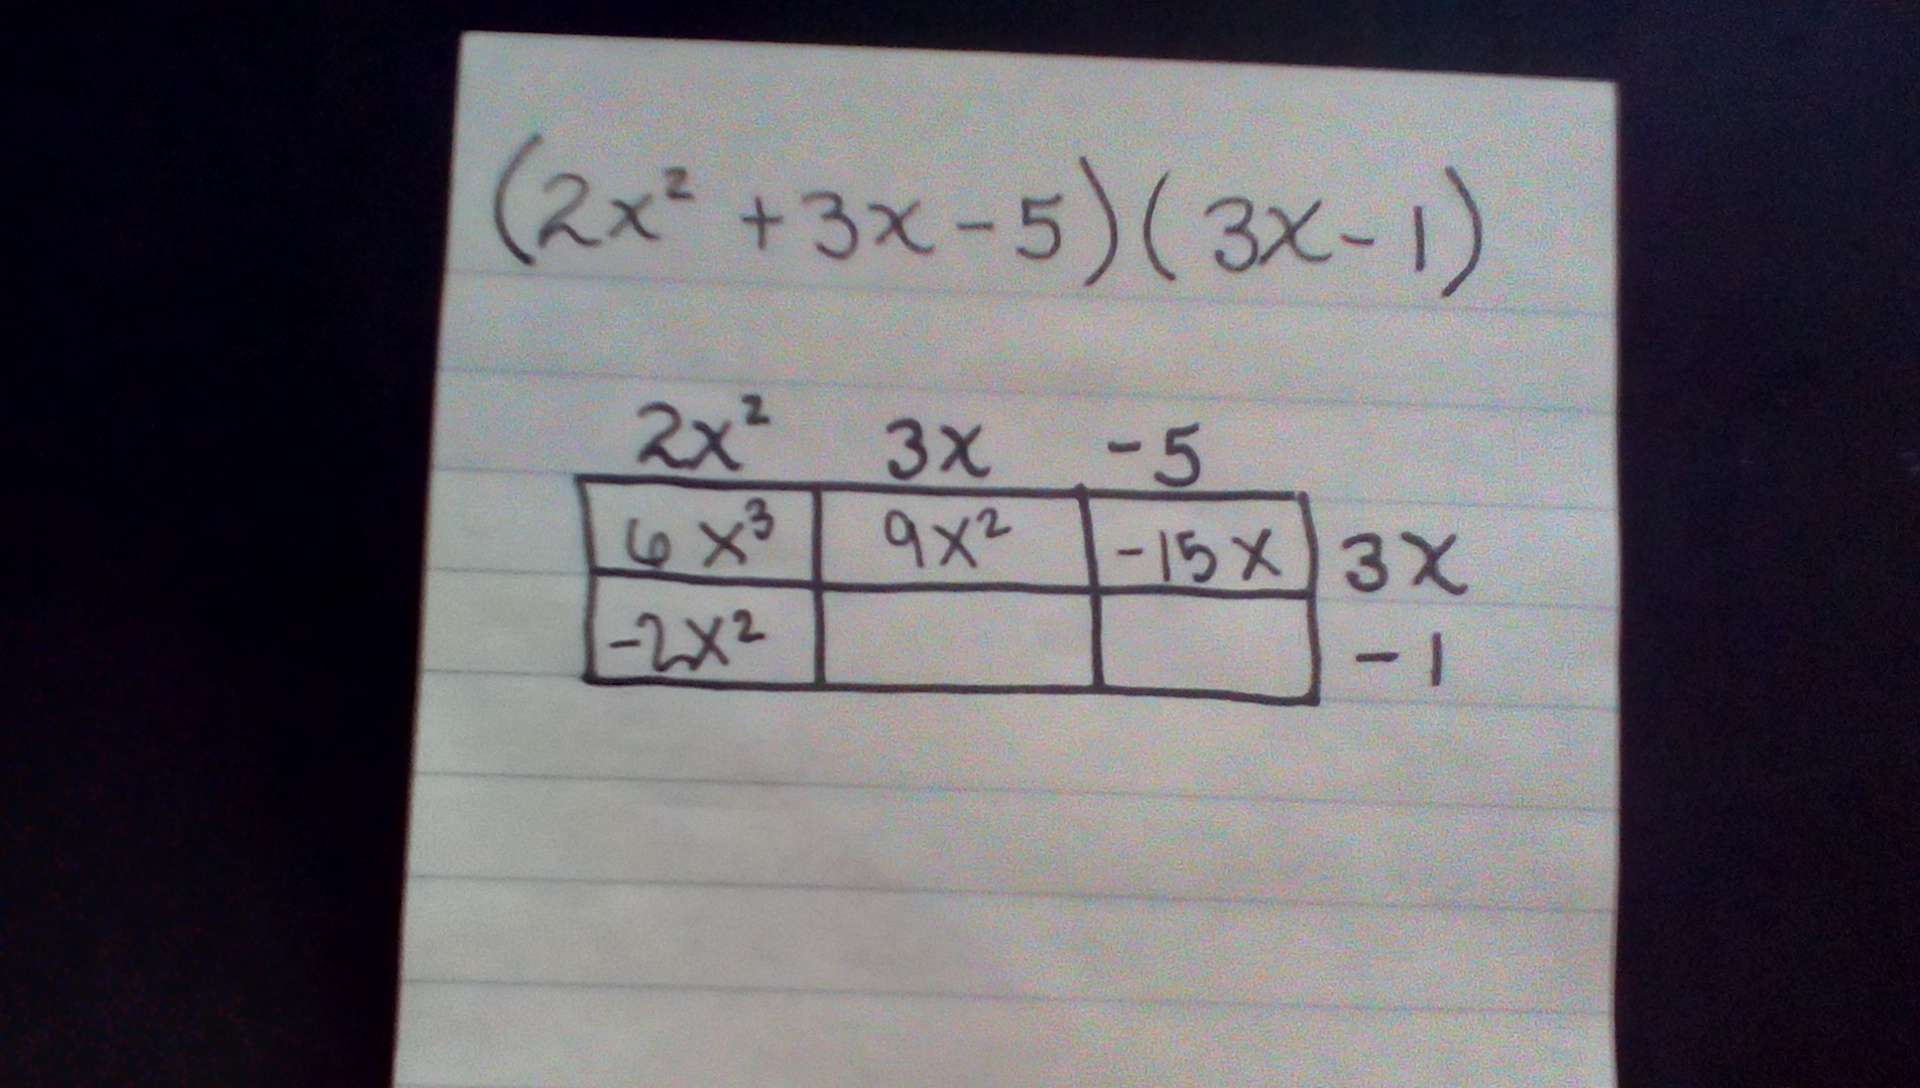 (2x² + 3x - 5)(3x - 1)
2x² 3x -5
6x³ 9x² -15x 3x
-2x² -1